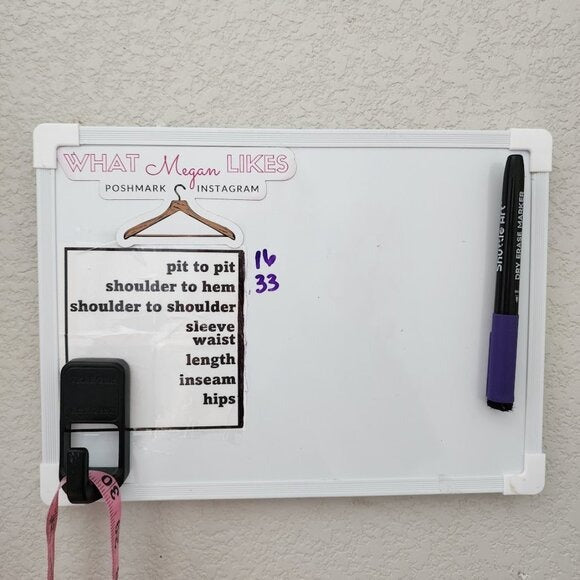 WHAT Megan LIKES
POSHMARK INSTAGRAM
pit to pit 16
shoulder to hem 33
shoulder to shoulder
sleeve
waist
length
inseam
hips
DRY ERASE MARKER
30